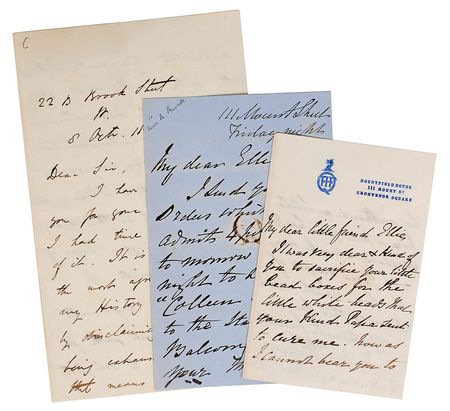 22 B Brook Street
W.
8 Octr. 18
Dear Sir,
I have
you for your
I had time
of it. It is
the work
my History
by disclaiming
being exhaus
that means
111 Mount Street
Friday night
My dear Ellie
I send you
Orders which
admits
to morrow
night to
Colleen
to the
Balcony
your
MOUNTFIELD HOUSE
111 MOUNT ST
GROSVENOR SQUARE
My dear little friend Ellie
I was very dear & kind of
you to sacrifice your little
bead boxes for the
little white beads that
your kind Papa sent
to cure me. Now as
I cannot bear you to